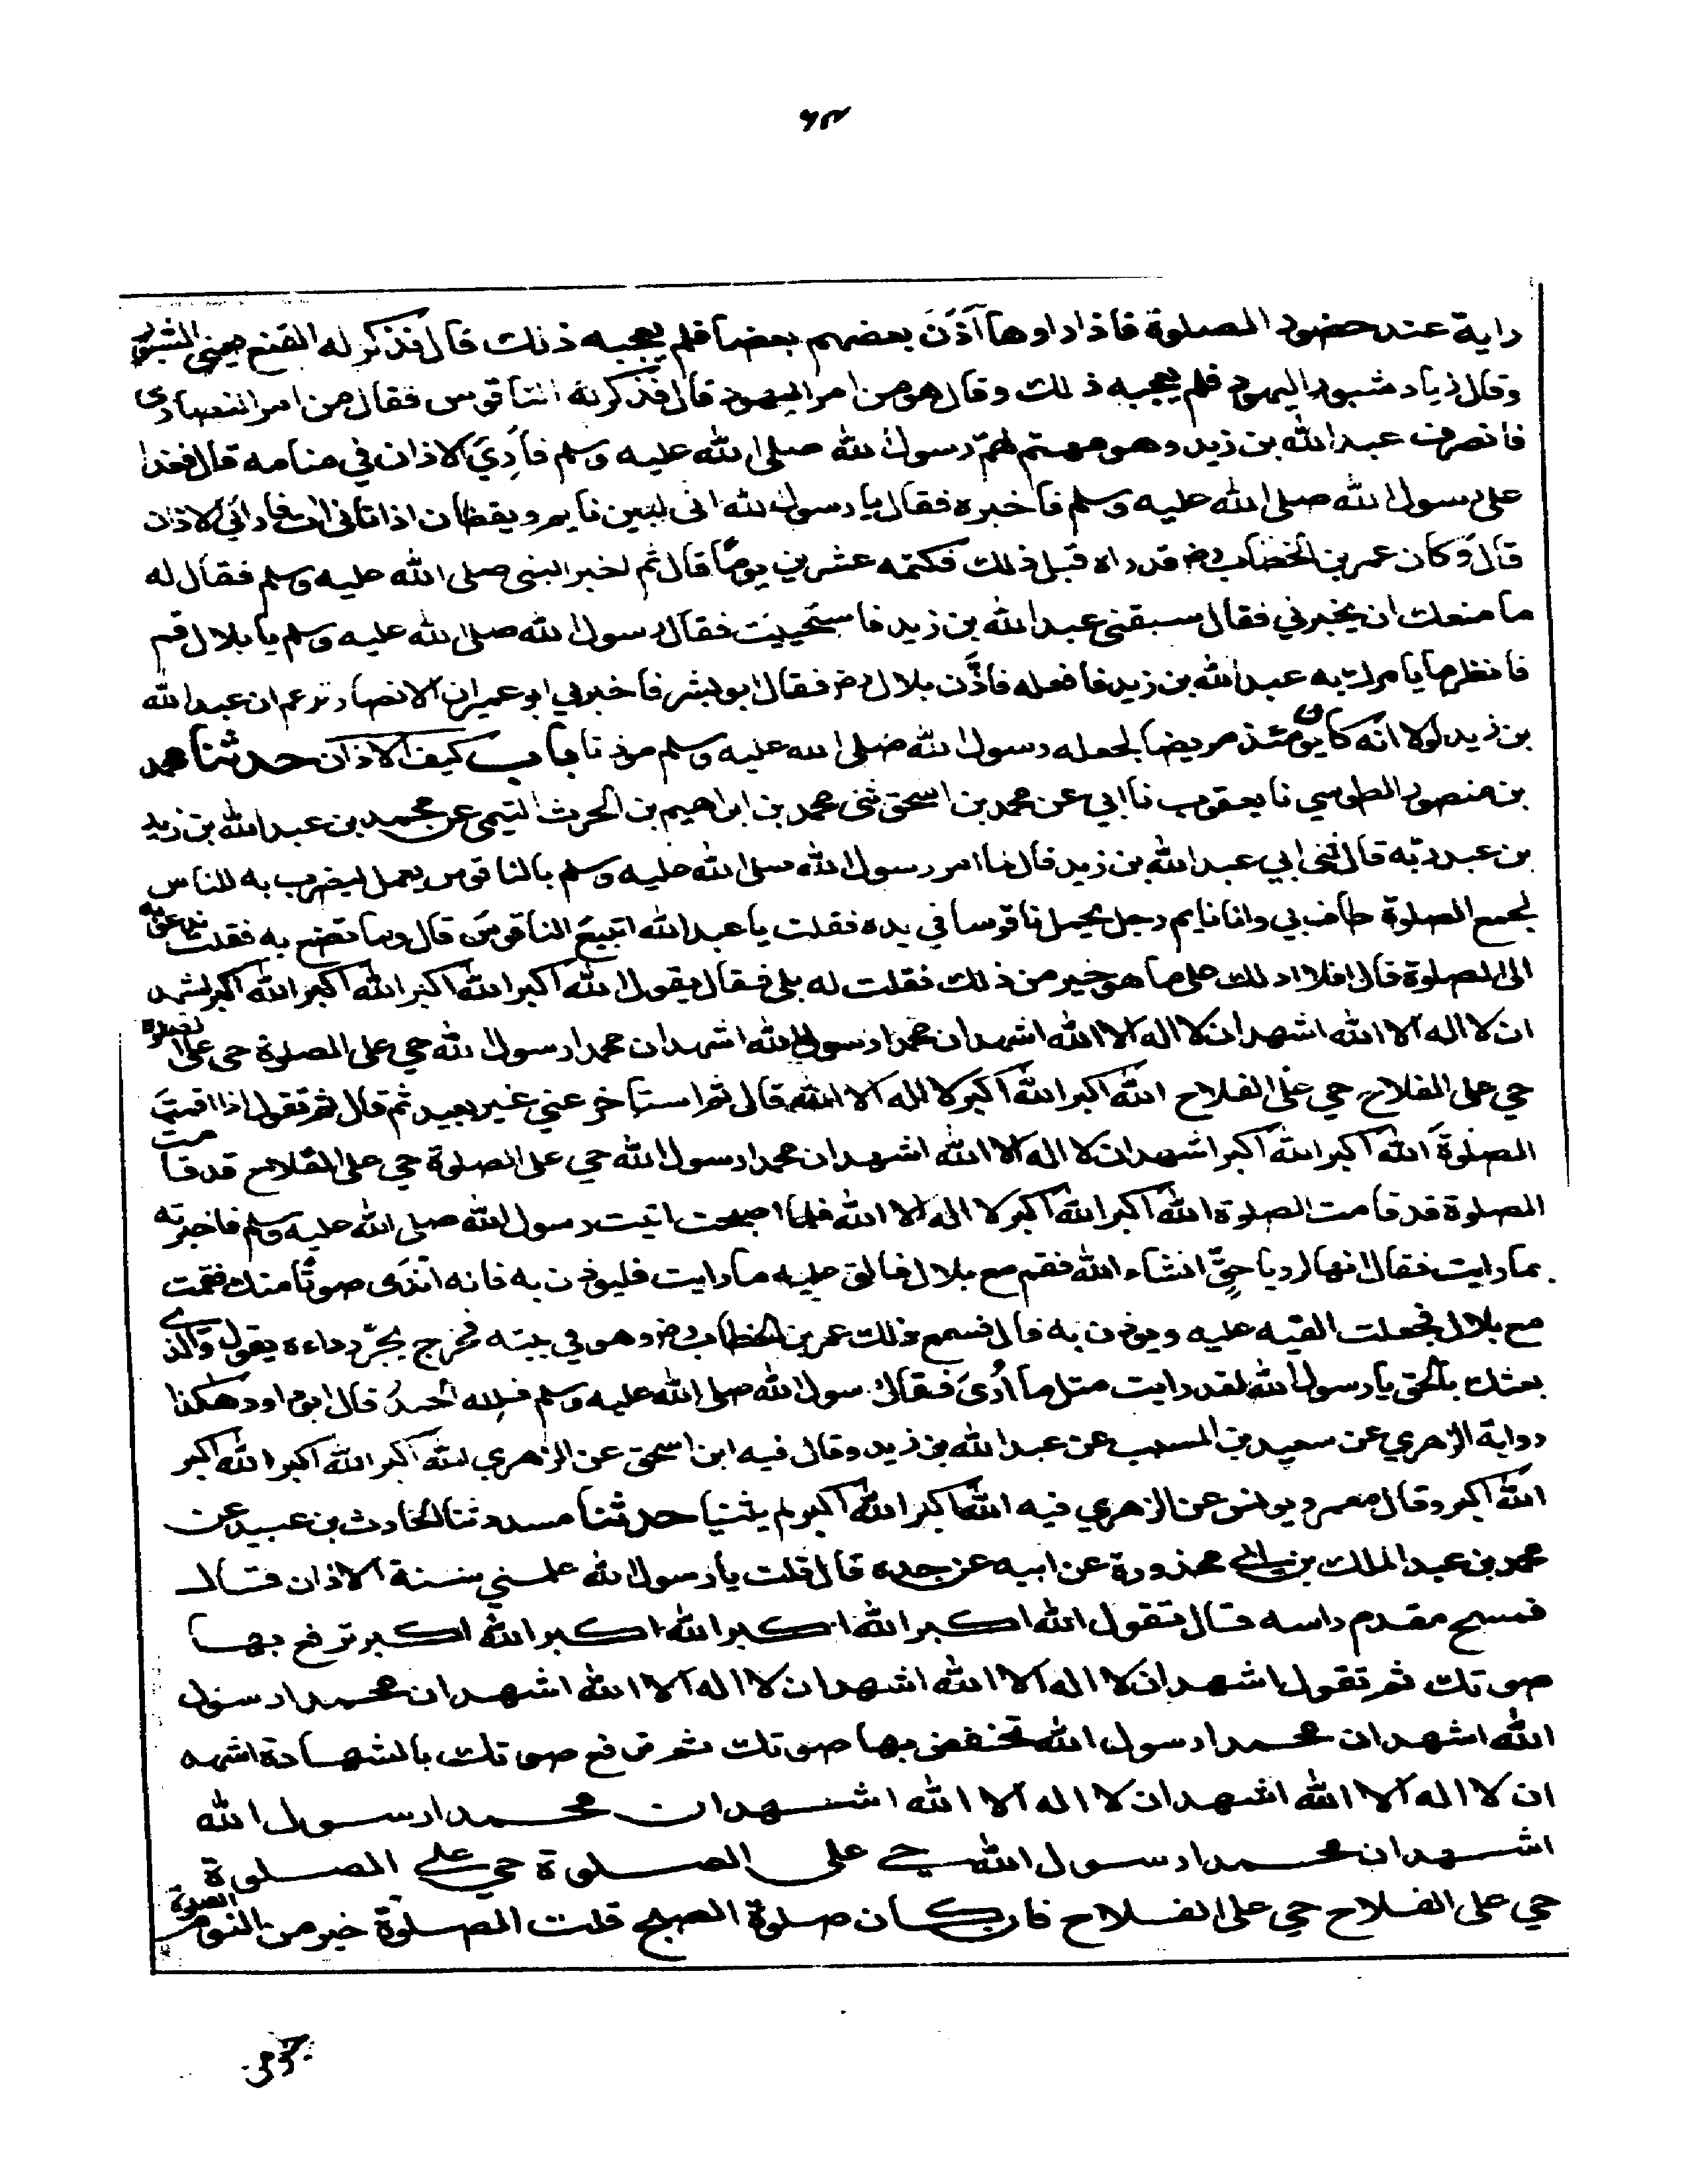 ٦٣
راية عند حضور الصلوة فاذا راوها آذَنَ بعضهم بعضا فلم يعجبه ذلك قال فذكر له القنع يعني الشبور
وقال زياد شبور اليهود فلم يعجبه ذلك وقال هو من امر اليهود قال فذكر له الناقوس فقال هو من امر النصارى
فانصرف عبد الله بن زيد وهو مهتم لهمّ رسول الله صلى الله عليه وسلم فأُرِيَ الاذان في منامه قال فغدا
على رسول الله صلى الله عليه وسلم فاخبره فقال يا رسول الله انى لبين نايم ويقظان اذ اتانى ات فاراني الاذان
قال وكان عمر بن الخطاب رض قد راه قبل ذلك فكتمه عشرين يومًا قال ثم اخبر النبى صلى الله عليه وسلم فقال له
ما منعك ان يخبرني فقال سبقنى عبد الله بن زيد فاستحييت فقال رسول الله صلى الله عليه وسلم يا بلال قم
فانظر ما يامرك به عبد الله بن زيد فافعله فاذّن بلال رض فقال ابو بشر فاخبرني ابو عمير ان الانصار تزعم ان عبد الله
بن زيد لولا انه كان يومئذ مريضا لجعله رسول الله صلى الله عليه وسلم موذنا باب كيف الاذان حدثنا محمد
بن منصور الطوسي نا يعقوب نا ابي عن محمد بن اسحق ثنى محمد بن ابراهيم بن الحرث التيمى عن محمد بن عبد الله بن زيد
بن عبد ربّه قال ثنى ابي عبد الله بن زيد قال لما امر رسول الله صلى الله عليه وسلم بالناقوس يعمل ليضرب به للناس
لجمع الصلوة طاف بي وانا نايم رجل يحمل ناقوسا في يده فقلت يا عبد الله اتبيع الناقوس قال وما تصنع به فقلت ندعو به
الى الصلوة قال افلا ادلك على ما هو خير من ذلك فقلت له بلى فقال تقول الله اكبر الله اكبر الله اكبر الله اكبر اشهد
ان لا اله الا الله اشهد ان لا اله الا الله اشهد ان محمدا رسول الله اشهد ان محمدا رسول الله حي على الصلوة حي على الصلوة
حي على الفلاح حي على الفلاح الله اكبر الله اكبر لا اله الا الله قال ثم استاخر عني غير بعيد ثم قال ثم تقول اذا اقمت
الصلوة الله اكبر الله اكبر اشهد ان لا اله الا الله اشهد ان محمدا رسول الله حي على الصلوة حي على الفلاح قد قامت
الصلوة قد قامت الصلوة الله اكبر الله اكبر لا اله الا الله فلما اصبحت اتيت رسول الله صلى الله عليه وسلم فاخبرته
بما رايت فقال انها لرويا حقّ انشاء الله فقم مع بلال فالق عليه ما رايت فليوذن به فانه اندَى صوتًا منك فقمت
مع بلال فجعلت القيه عليه ويوذن به قال فسمع ذلك عمر بن الخطاب رض وهو في بيته فخرج يجرّ رداءه يقول والذي
بعثك بالحق يا رسول الله لقد رايت مثل ما اُرِىَ فقال رسول الله صلى الله عليه وسلم فلله الحمدُ قال ابو داود هكذا
رواية الزهري عن سعيد بن المسيب عن عبد الله بن زيد وقال فيه ابن اسحق عن الزهري الله اكبر الله اكبر الله اكبر
الله اكبر وقال معمر ويونس عن الزهري فيه الله اكبر الله اكبر لم يثنيا حدثنا مسدد ثنا الحارث بن عبيد عن
محمد بن عبد الملك بن ابي محذورة عن ابيه عن جده قال قلت يا رسول الله علمني سنة الاذان قال
فمسح مقدم راسه قال تقول الله اكبر الله اكبر الله اكبر الله اكبر ترفع بها
صوتك ثم تقول اشهد ان لا اله الا الله اشهد ان لا اله الا الله اشهد ان محمدا رسول
الله اشهد ان محمدا رسول الله تخفض بها صوتك ثم ترفع صوتك بالشهادة اشهد
ان لا اله الا الله اشهد ان لا اله الا الله اشهد ان محمدا رسول الله
اشهد ان محمدا رسول الله حي على الصلوة حي على الصلوة
حي على الفلاح حي على الفلاح فان كان صلوة الصبح قلت الصلوة خير من النوم الصلوة